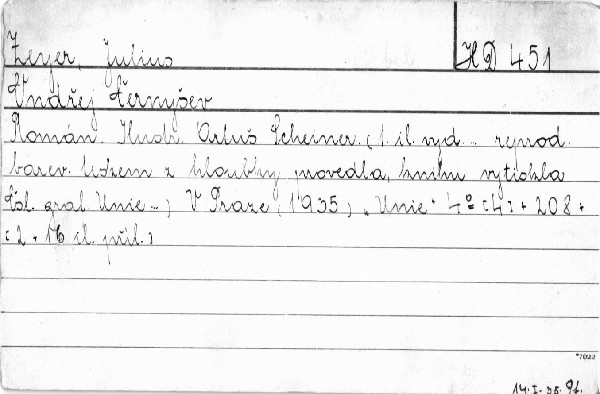 Zeyer, Julius
HD 451
Ondřej Černyšev
Román. Ilustr. Artuš Scheiner. (1. il. vyd. .. reprod.
barev. tiskem z hloubky provedla, knihu vytiskla
Čsl. graf. Unie ..) V Praze (1935) "Unie" 4° [4] + 208 +
[2 + 16 il. příl.]
*7022